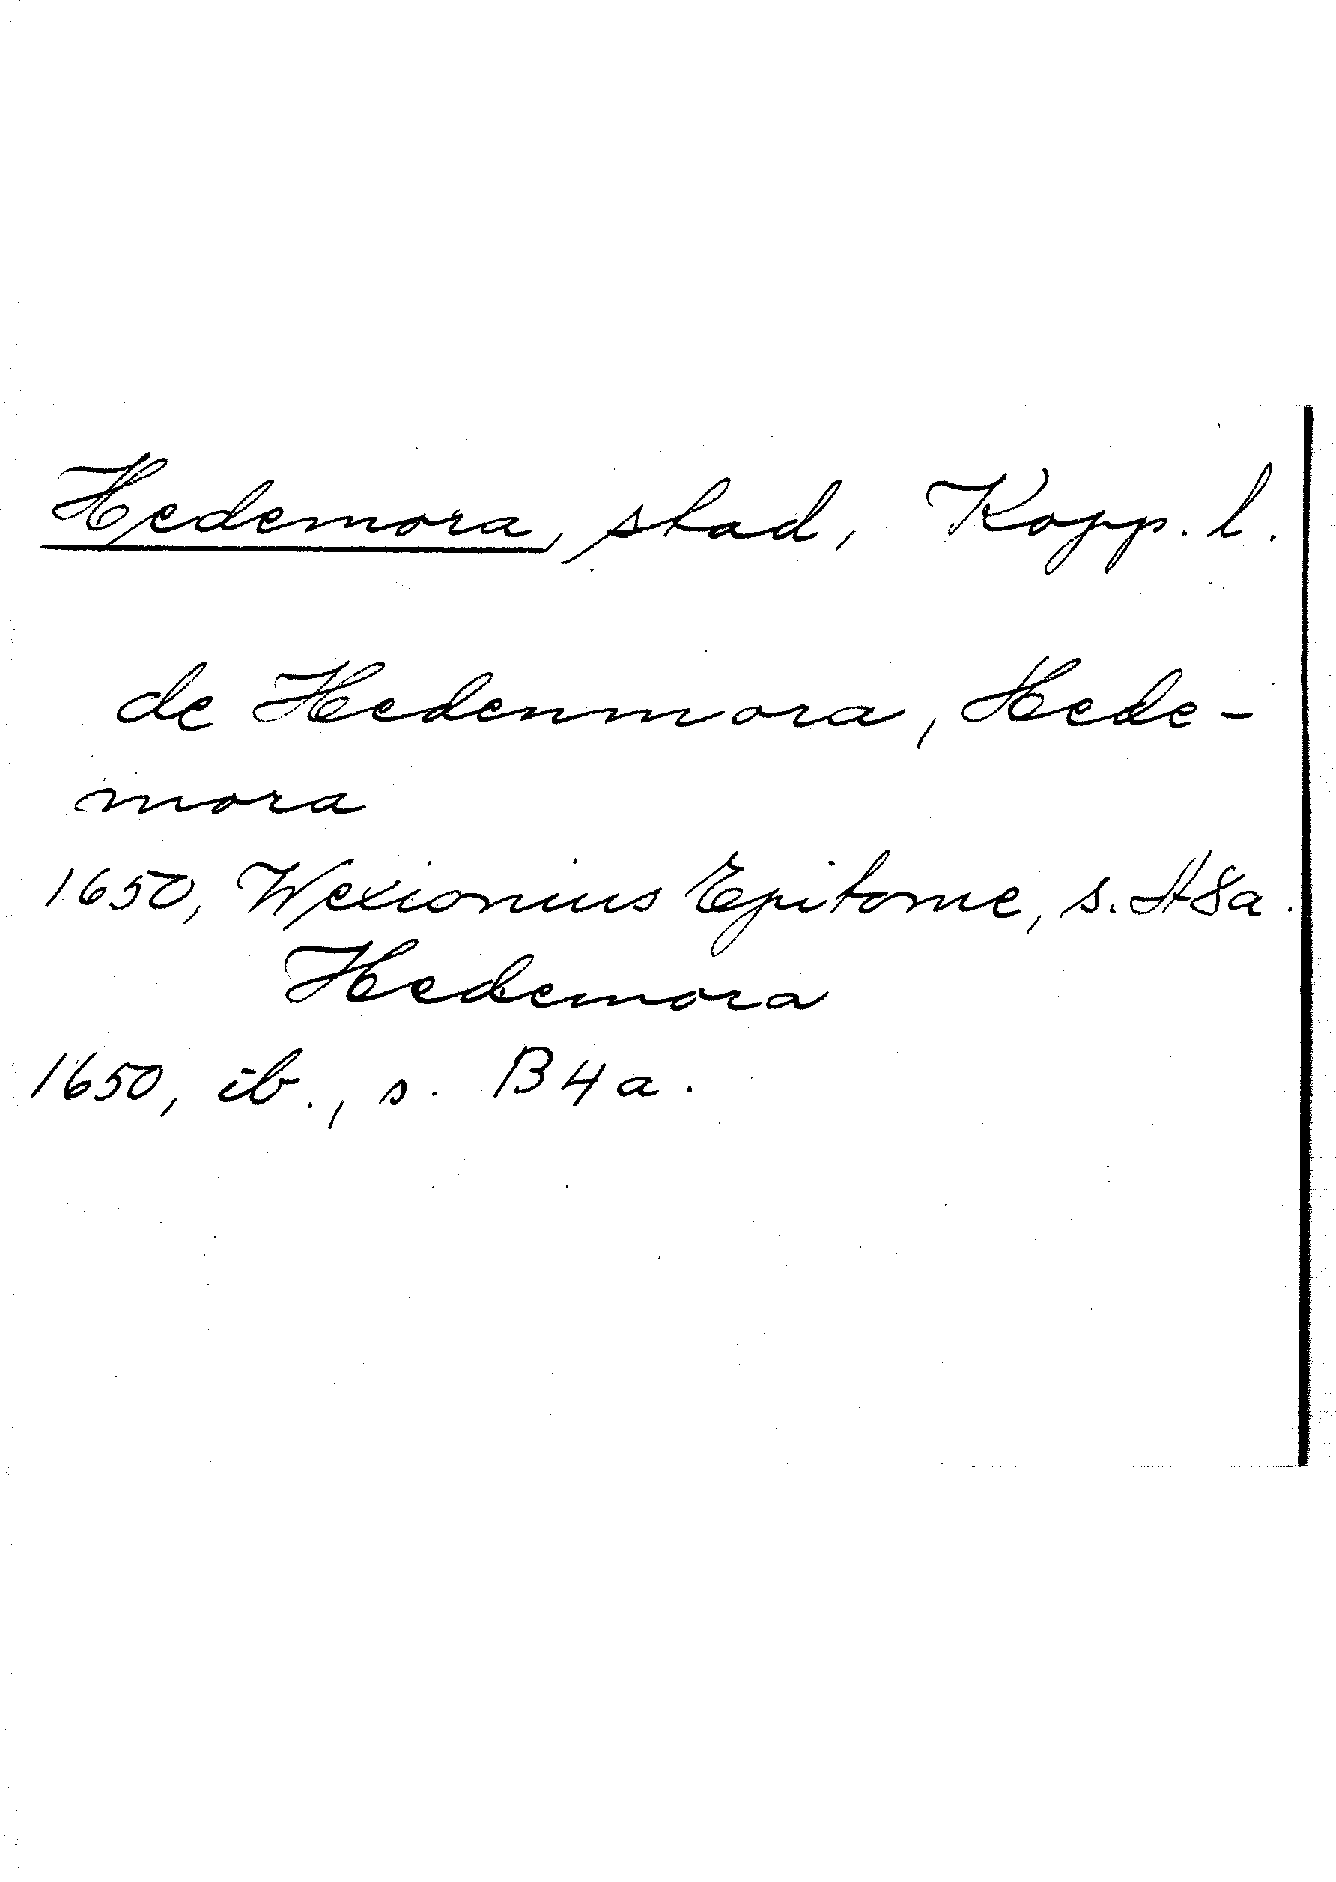 Hedemora, stad, Kopp. l.
de Hedenmora, Hede-
mora
1650, Wexionius Epitome, s. A8a.
Hedemora
1650, ib., s. B4a.